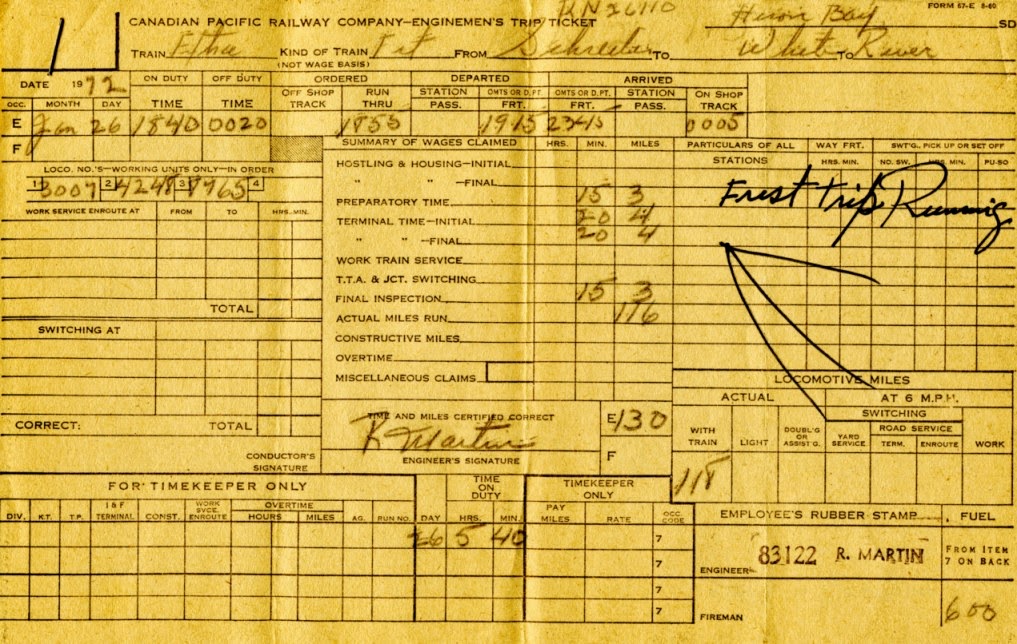 RN 26110
FORM 57-E 8-60
1
CANADIAN PACIFIC RAILWAY COMPANY—ENGINEMEN'S TRIP TICKET
Heron Bay SD
TRAIN Extra KIND OF TRAIN Frt FROM Schreiber TO White TO River
(NOT WAGE BASIS)
DATE 1972 ON DUTY OFF DUTY ORDERED DEPARTED ARRIVED
OFF SHOP TRACK RUN THRU STATION PASS. OMTS OR D.PT. FRT. OMTS OR D.PT. FRT. STATION PASS. ON SHOP TRACK
OCC. MONTH DAY TIME TIME
E Jan 26 1840 0020 1855 1915 2345 0005
F
SUMMARY OF WAGES CLAIMED HRS. MIN. MILES
PARTICULARS OF ALL WAY FRT. SWT'G., PICK UP OR SET OFF
STATIONS HRS. MIN. NO. SW. HRS. MIN. PU-SO
LOCO. NO.'S—WORKING UNITS ONLY—IN ORDER
1 3007 2 4248 3 8765 4
WORK SERVICE ENROUTE AT FROM TO HRS. MIN.
TOTAL
SWITCHING AT
CORRECT: TOTAL
CONDUCTOR'S SIGNATURE
HOSTLING & HOUSING—INITIAL
" " —FINAL
PREPARATORY TIME 15 3
TERMINAL TIME—INITIAL 20 4
" " —FINAL 20 4
WORK TRAIN SERVICE
T.T.A. & JCT. SWITCHING
FINAL INSPECTION 15 3
ACTUAL MILES RUN 116
CONSTRUCTIVE MILES
OVERTIME
MISCELLANEOUS CLAIMS
TIME AND MILES CERTIFIED CORRECT
R Martin
ENGINEER'S SIGNATURE
E 130
F
Frest trip Running
LOCOMOTIVE MILES
ACTUAL AT 6 M.P.H.
SWITCHING
WITH TRAIN LIGHT DOUBL'G OR ASSIST'G. YARD SERVICE ROAD SERVICE TERM. ENROUTE WORK
118
FOR TIMEKEEPER ONLY TIME ON DUTY TIMEKEEPER ONLY
DIV. K.T. T.P. I & F TERMINAL CONST. WORK SVCE. ENROUTE OVERTIME HOURS MILES AG. RUN NO. DAY HRS. MIN. PAY MILES RATE OCC. CODE
26 5 40 7
7
7
7
EMPLOYEE'S RUBBER STAMP FUEL
ENGINEER 83122 R. MARTIN
FROM ITEM 7 ON BACK
FIREMAN
600